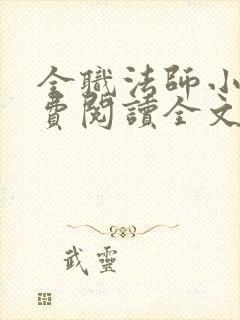 全職法師小
費閱讀全文
武靈